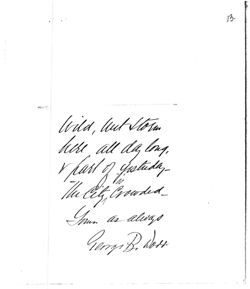 13.
Wild, wet storm
here all day long,
& part of yesterday
The City is Crowded
Yours as always
George B.